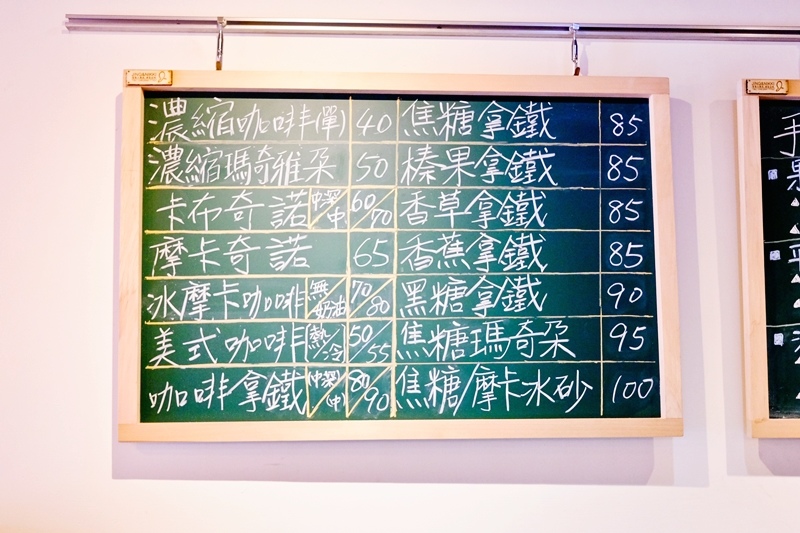 濃縮咖啡(單) 40 焦糖拿鐵 85
濃縮瑪奇雅朵 50 榛果拿鐵 85
卡布奇諾 中深/中 60/70 香草拿鐵 85
摩卡奇諾 65 香蕉拿鐵 85
冰摩卡咖啡 無/奶油 70/80 黑糖拿鐵 90
美式咖啡 熱/冷 50/55 焦糖瑪奇朵 95
咖啡拿鐵 (中深)/(中) 80/90 焦糖/摩卡冰砂 100
手
果